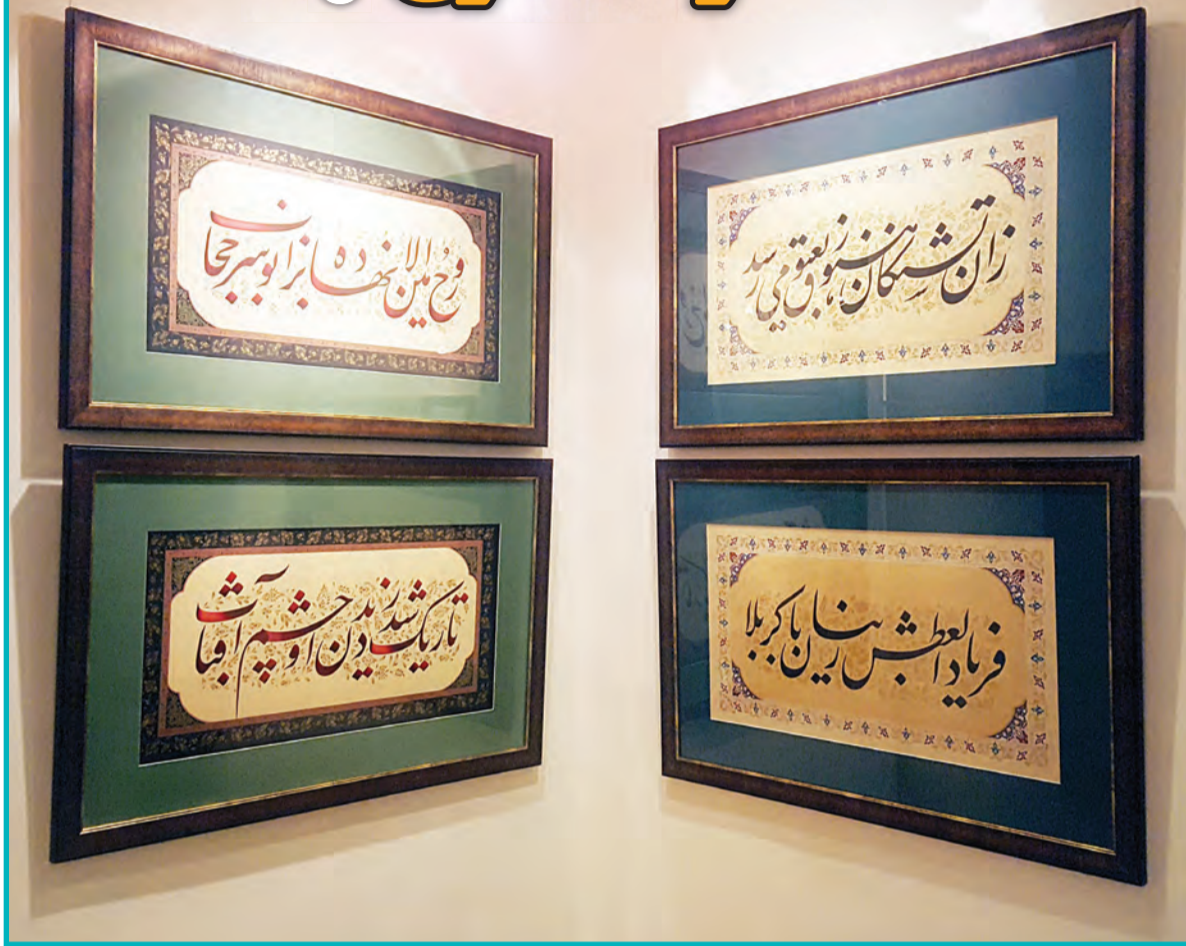 زان تشنگان هنوز بعیوق می رسد
فریاد العطش ز بیابان کربلا
روح الامین نهاده بزانو سر حجاب
تاریک شد ز دیدن او چشم آفتاب